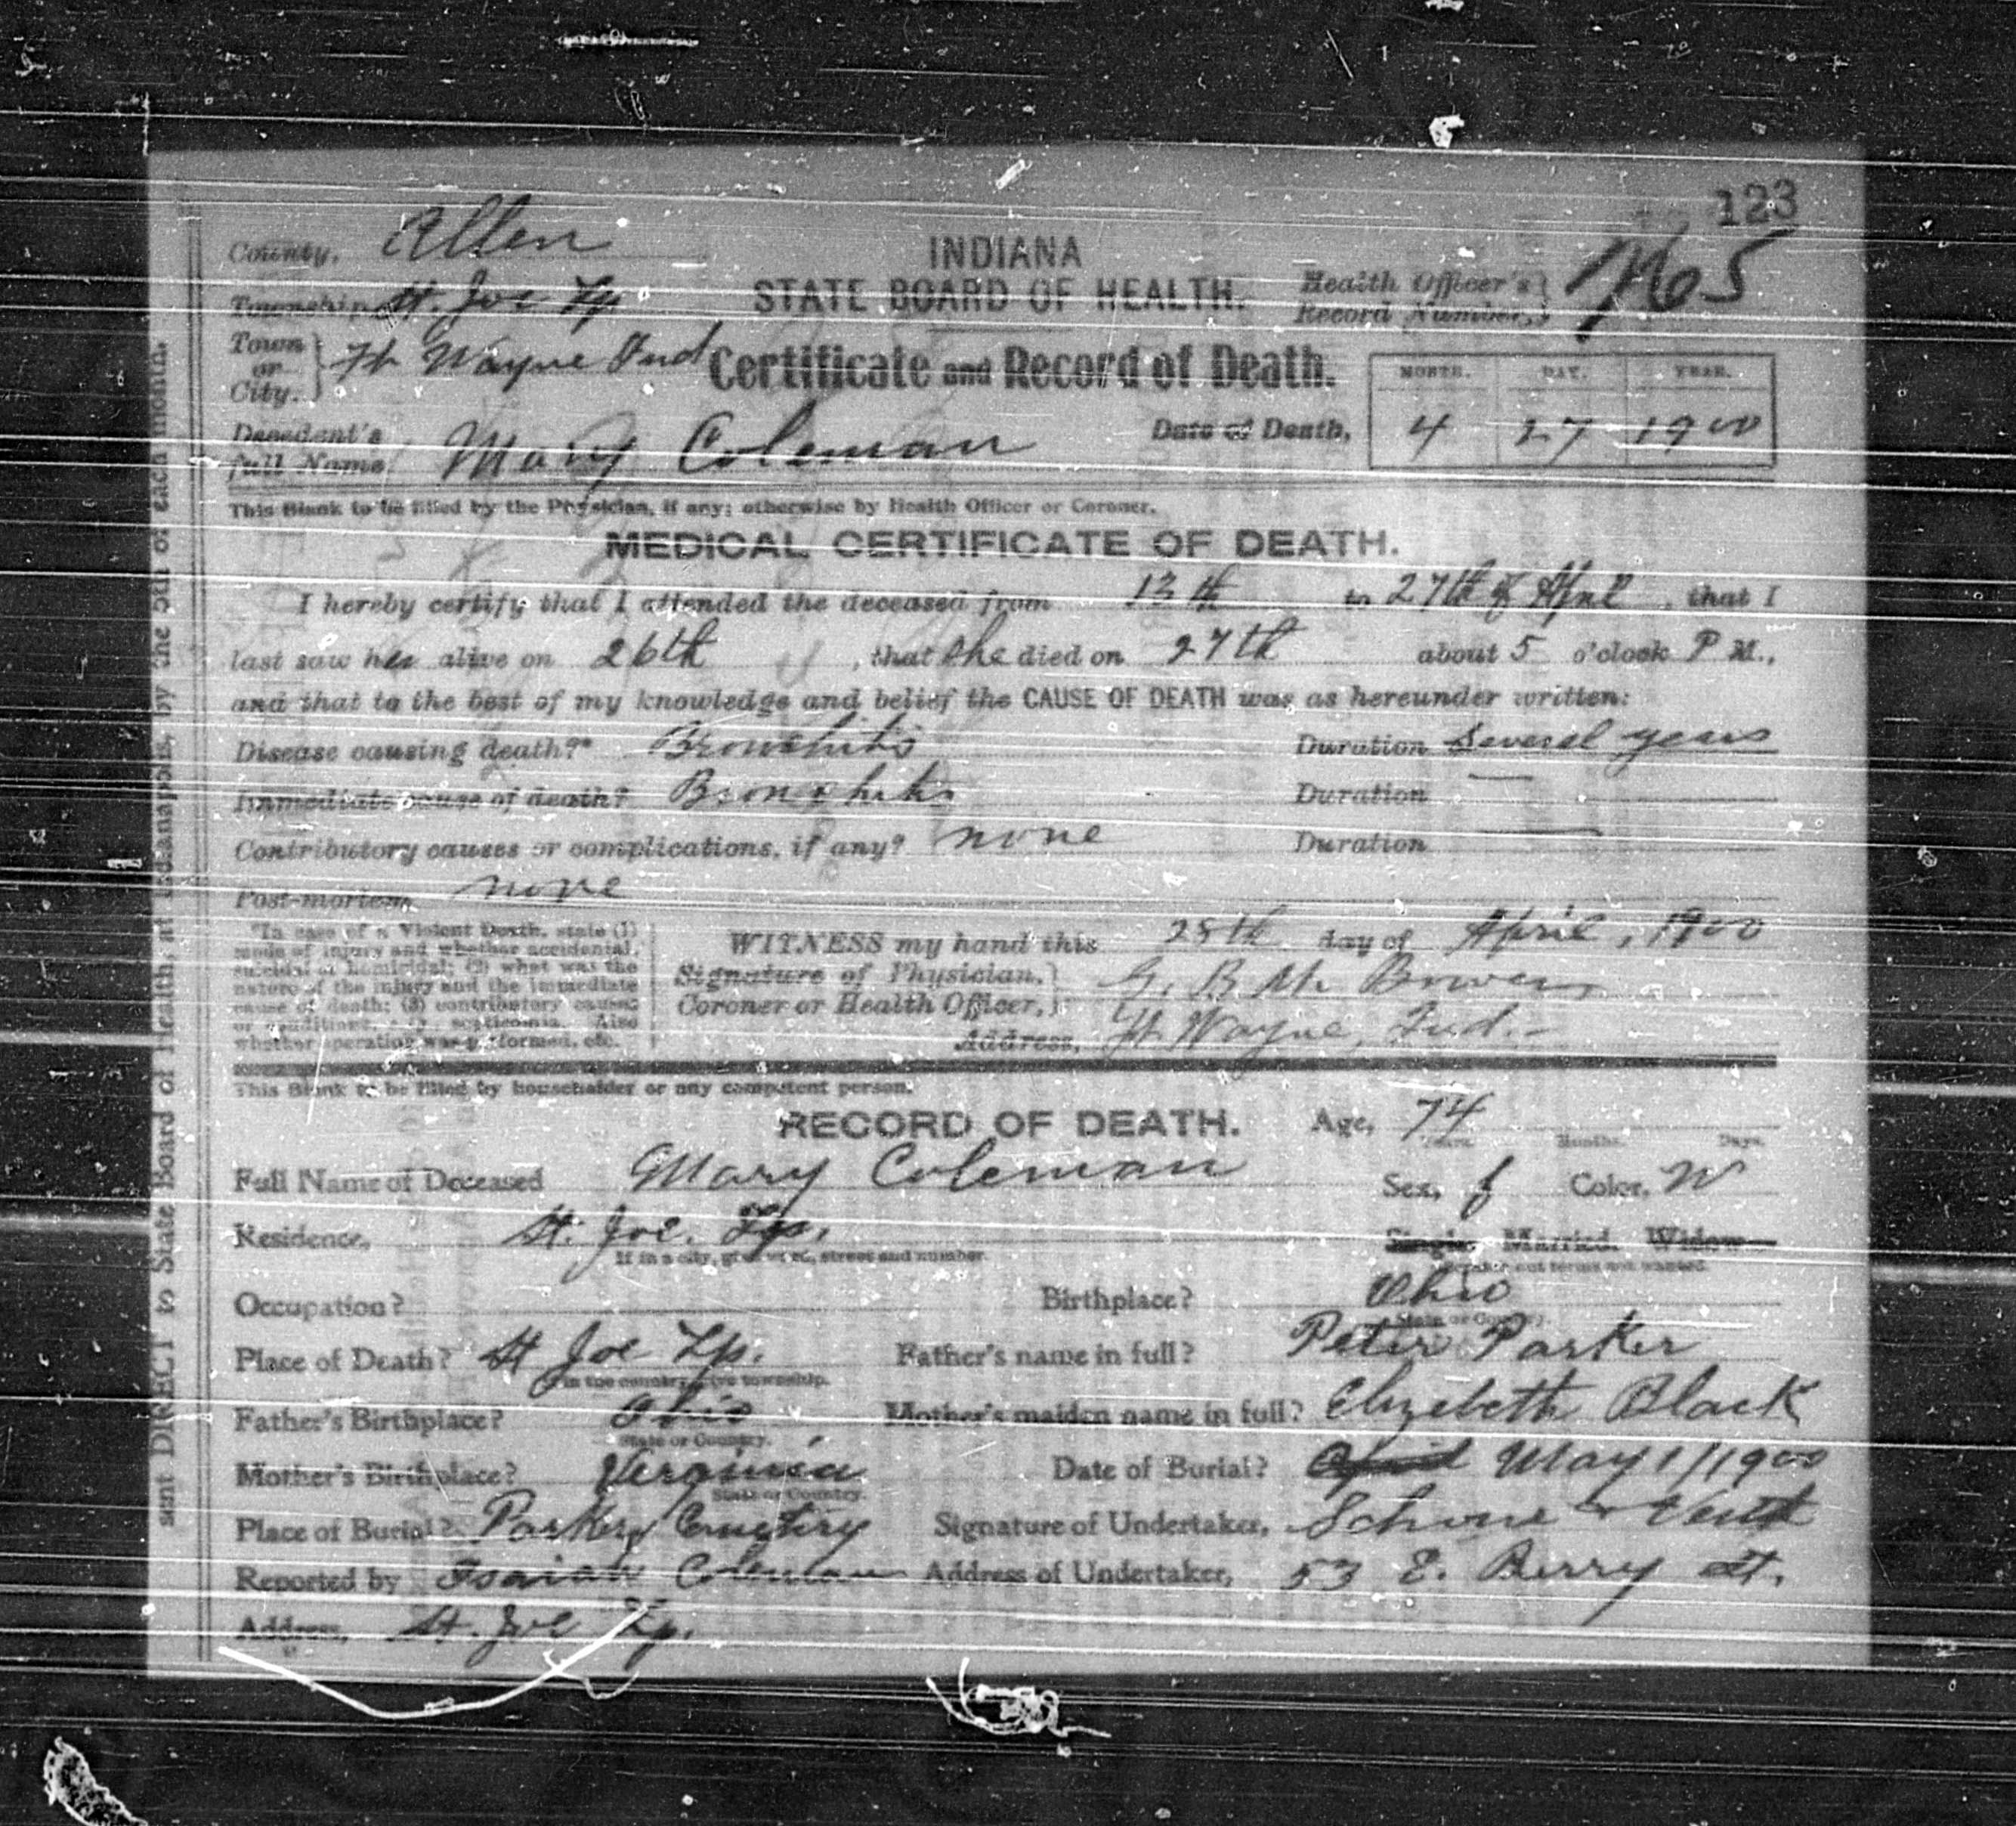 123
County, Allen
INDIANA
Township, St. Joe Tp
STATE BOARD OF HEALTH.
Health Officer's Record Number,
Town or City. Ft Wayne Ind
Certificate and Record of Death.
MONTH. DAY. YEAR.
Decedent's full Name, Mary Coleman
Date of Death, 4 27 1900
This Blank to be filled by the Physician, if any; otherwise by Health Officer or Coroner.
MEDICAL CERTIFICATE OF DEATH.
I hereby certify that I attended the deceased from 13th to 27th of April, that I
last saw her alive on 26th, that she died on 27th about 5 o'clock P M.,
and that to the best of my knowledge and belief the CAUSE OF DEATH was as hereunder written:
Disease causing death?* Bronchitis Duration Several years
Immediate cause of death? Bronchitis Duration —
Contributory causes or complications, if any? none Duration —
Post-mortem, none
*In case of a Violent Death, state (1)
mode of injury and whether accidental,
suicidal or homicidal; (2) what was the
nature of the injury and the immediate
cause of death; (3) contributory causes
or conditions, septicemia. Also
whether operation was performed, etc.
WITNESS my hand this 28th day of April, 1900
Signature of Physician, Coroner or Health Officer, G. B. M. Bowers
Address, Ft. Wayne, Ind.
This Blank to be filled by householder or any competent person.
RECORD OF DEATH. Age, 74
Years. Months. Days.
Full Name of Deceased Mary Coleman Sex, f Color, W
Residence, St. Joe. Tp. Single. Married. Widow
If in a city, give ward, street and number. Strike out terms not wanted.
Occupation? Birthplace? Ohio
State or Country.
Place of Death? St Joe Tp. Father's name in full? Peter Parker
If in the country, give township.
Father's Birthplace? Ohio Mother's maiden name in full? Elizebeth Black
State or Country.
Mother's Birthplace? Verginia Date of Burial? April May 1/1900
State or Country.
Place of Burial? Parkers Cemetiry Signature of Undertaker, Schone & Veith
Reported by Isaiah Coleman Address of Undertaker, 53 E. Berry St.
Address, St. Joe Tp.
sent DIRECT to State Board of Health, at Indianapolis, by the 5th of each month.